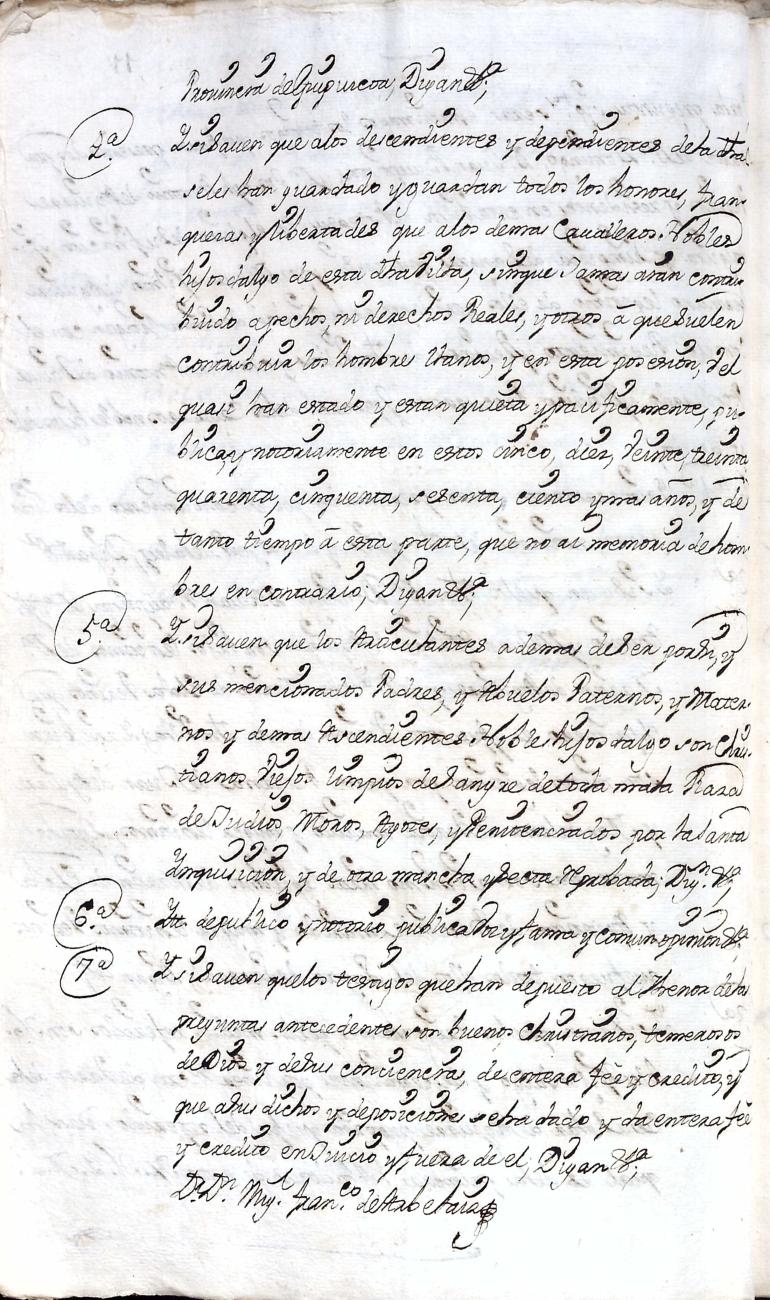 Provincia de Guipuzcoa; Digan &ª;
4.ª Y si saven que alos descendientes y dependientes dela dha.
seles han guardado y guardan todos los honores, fran-
quezas y libertades que alos demas Cavalleros Nobles
hijosdalgo de esta dha Villa, sinque Jamas aian contri-
buido a pechos, ni derechos Reales, y otros â que suelen
contribuir los hombres llanos, y en esta posesion, vel
quasi han estado y estan quieta y pacificamente, pu-
blica, y notoriamente en estos cinco, diez, veinte, treinta
quarenta, cinquenta, sesenta, ciento y mas años, y de
tanto tiempo â esta parte, que no ai memoria de hom-
bres en contrario; Digan &ª;
5.ª Y si saven que los Articulantes ademas de ser por si, y
sus mencionados Padres, y Abuelos Paternos, y Mater-
nos y demas Ascendientes Nobles hijosdalgo son Chris-
tianos Viejos limpios de sangre de toda mala Raza
de Judios, Moros, Agotes, y Penitenciados por la Santa
Ynquisicion, y de otra mancha y secta reprobada; Dig.n &ª;
6.ª Yt. de publico y notorio, publica voz y fama y comun opinion &ª
7.ª Y si saven quelos testigos que han depuesto al thenor delas
preguntas antecedentes son buenos Christianos, temerosos
de Dios y desus conciencias, de entera feê y credito, y
que asus dichos y deposiciones se ha dado y da entera feê
y credito en Juicio y fuera de el; Digan &ª;
Dr. Dn. Mig.l Fran.co de